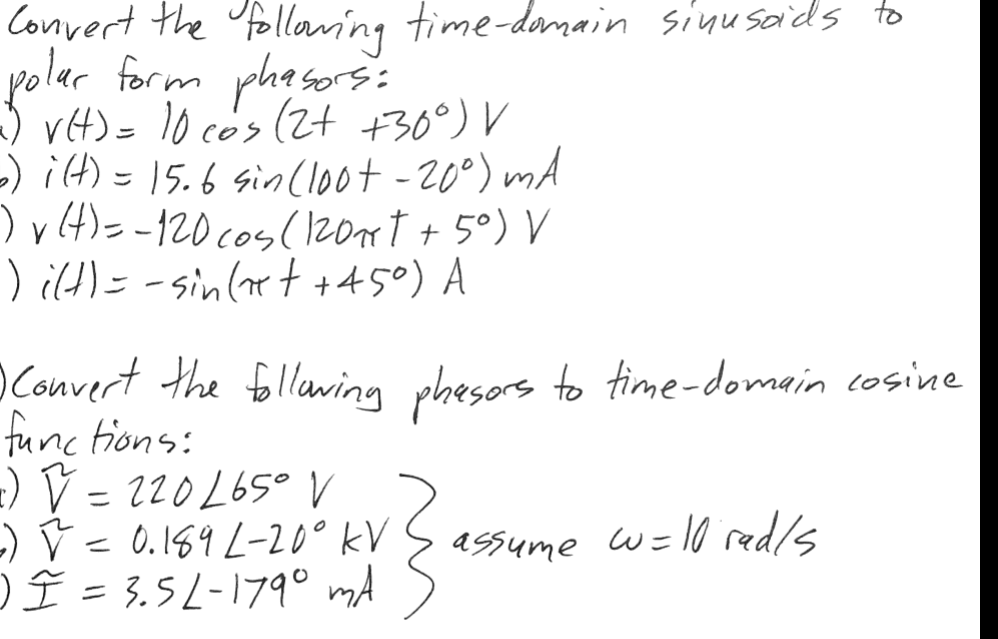 Convert the following time-domain sinusoids to
polar form phasors:
) v(t) = 10 cos (2t +30°) V
) i(t) = 15.6 sin(100t - 20°) mA
) v(t) = -120 cos(120πt + 5°) V
) i(t) = - sin(πt +45°) A
) Convert the following phasors to time-domain cosine
functions:
) Ṽ = 220∠65° V
) Ṽ = 0.189∠-20° kV } assume ω = 10 rad/s
) Ĩ = 3.5∠-179° mA